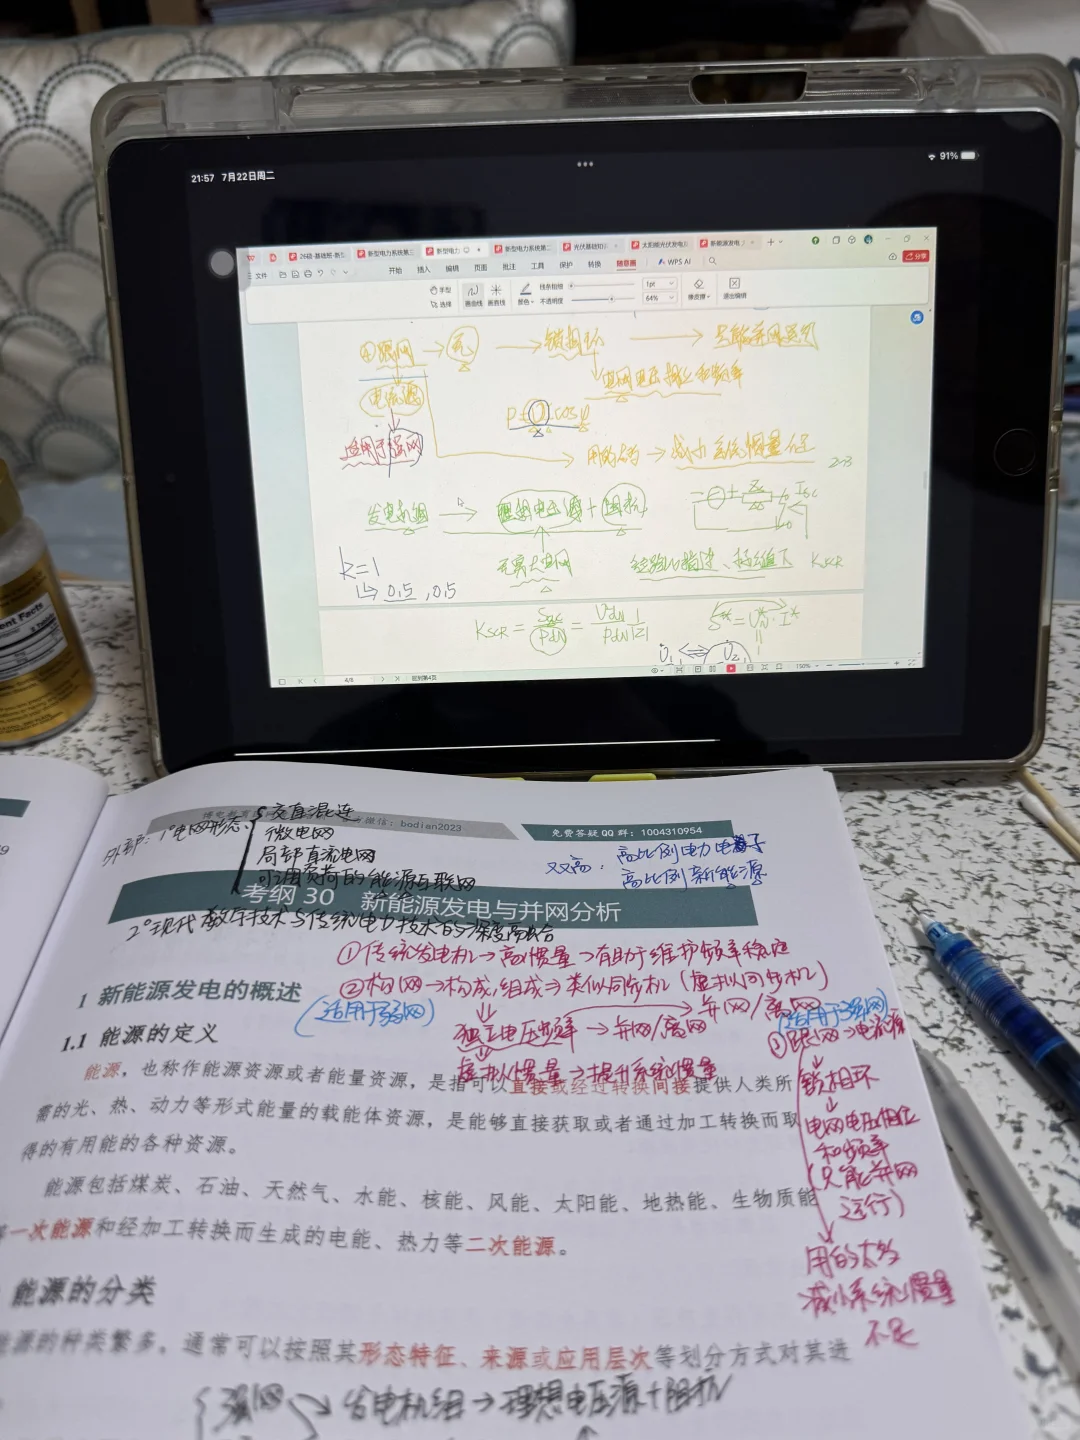 21:57 7月22日周二
91%
新型电力系统第二
新型电力
新型电力系统第二
光伏基础知识
太阳能光伏发电
新能源发电
文件
开始 插入 编辑 页面 批注 工具 保护 转换 随意画 WPS AI
分享
手型
选择
画曲线 画直线
颜色
线条粗细 1pt
不透明度 64%
橡皮擦
退出编辑
④跟网→ 锁相环 → 只能并网运行
电流源
电网电压相位和频率
适用于强网
用的太多→减小系统惯量
发电机组 → 理想电压源+阻抗
无穷大电网
K=1
0.5,0.5
KSCR
4/8
150%
外部:1°电网形态
交直混连
微电网
局部直流电网
可调负荷的能源互联网
微信: bodian2023
免费答疑 QQ 群: 1004310954
双高: 高比例电力电子
高比例新能源
考纲 30 新能源发电与并网分析
2°现代数字技术与传统电力技术的深度融合
①传统发电机→高惯量→有助于维护频率稳定
②构网→构成,组成⇒类似同步机(虚拟同步机)
(适用于弱网)
独立电压频率→并网/离网
并网/离网
(适用于强网)
③跟网→电流源
虚拟惯量→提升系统惯量
1 新能源发电的概述
1.1 能源的定义
能源,也称作能源资源或者能量资源,是指可以直接或经过转换间接提供人类所
需的光、热、动力等形式能量的载能体资源,是能够直接获取或者通过加工转换而取
得的有用能的各种资源。
能源包括煤炭、石油、天然气、水能、核能、风能、太阳能、地热能、生物质能
一次能源和经加工转换而生成的电能、热力等二次能源。
锁相环
电网电压相位
和频率
(只能并网
运行)
用的太多
减小系统惯量
不足
能源的分类
能源的种类繁多,通常可以按照其形态特征、来源或应用层次等划分方式对其进
强网
发电机组→理想电压源+阻抗